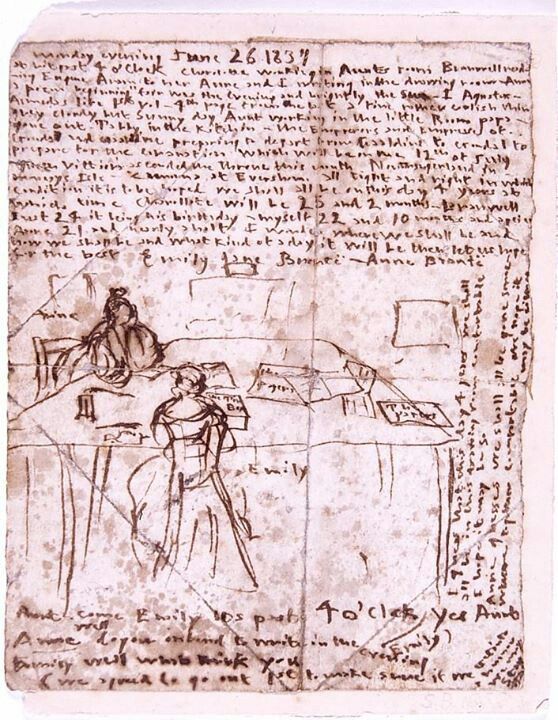 Monday evening June 26 1837
A bit past 4 o'Clock Charlotte working in Aunts room Branwell read
ing Eugene Aram to her Anne and I writing in the drawing room Anne
a poem beginning fair was the evening and brightly the sun I Agustus
Almedas life 1st v 1-4th page from the last a fine rather coolish thin
grey cloudy but sunny day Aunt working in the little Room papa
gone out Tabby in the Kitchin the Emperors and Empresses of
Gondal and Gaaldine preparing to depart from Gaaldine to Gondal to
prepare for the coronation which will be on the 12th of July
Queen Vittiora ascended the throne this month Northangerland in
Monceys Isle Zamorna at Eversham all tight and right in which
condition it is to be hoped we shall all be on this day 4 years at
which time Charollote will be 25 and 2 months Branwell
just 24 it being his birthday myself 22 and 10 months and a peice
Anne 21 and nearly a half I wonder where we shall be and
how we shall be and what kind of a day it will be then let us hope
for the best Emily Jane Brontë Anne Brontë
Anne
The
Emily
I guess that this day 4 years we shall
all be in this drawing room comfortable
I hope it may be so
Anne guesses we shall all be gone somewhere
together comfortable we hope it may be
Aunt come Emily Its past 4 o'Clock Yes Aunt
Anne well do you intend to write in the evening
Emily well what think you
(we agreed to go out 1st to make sure if we